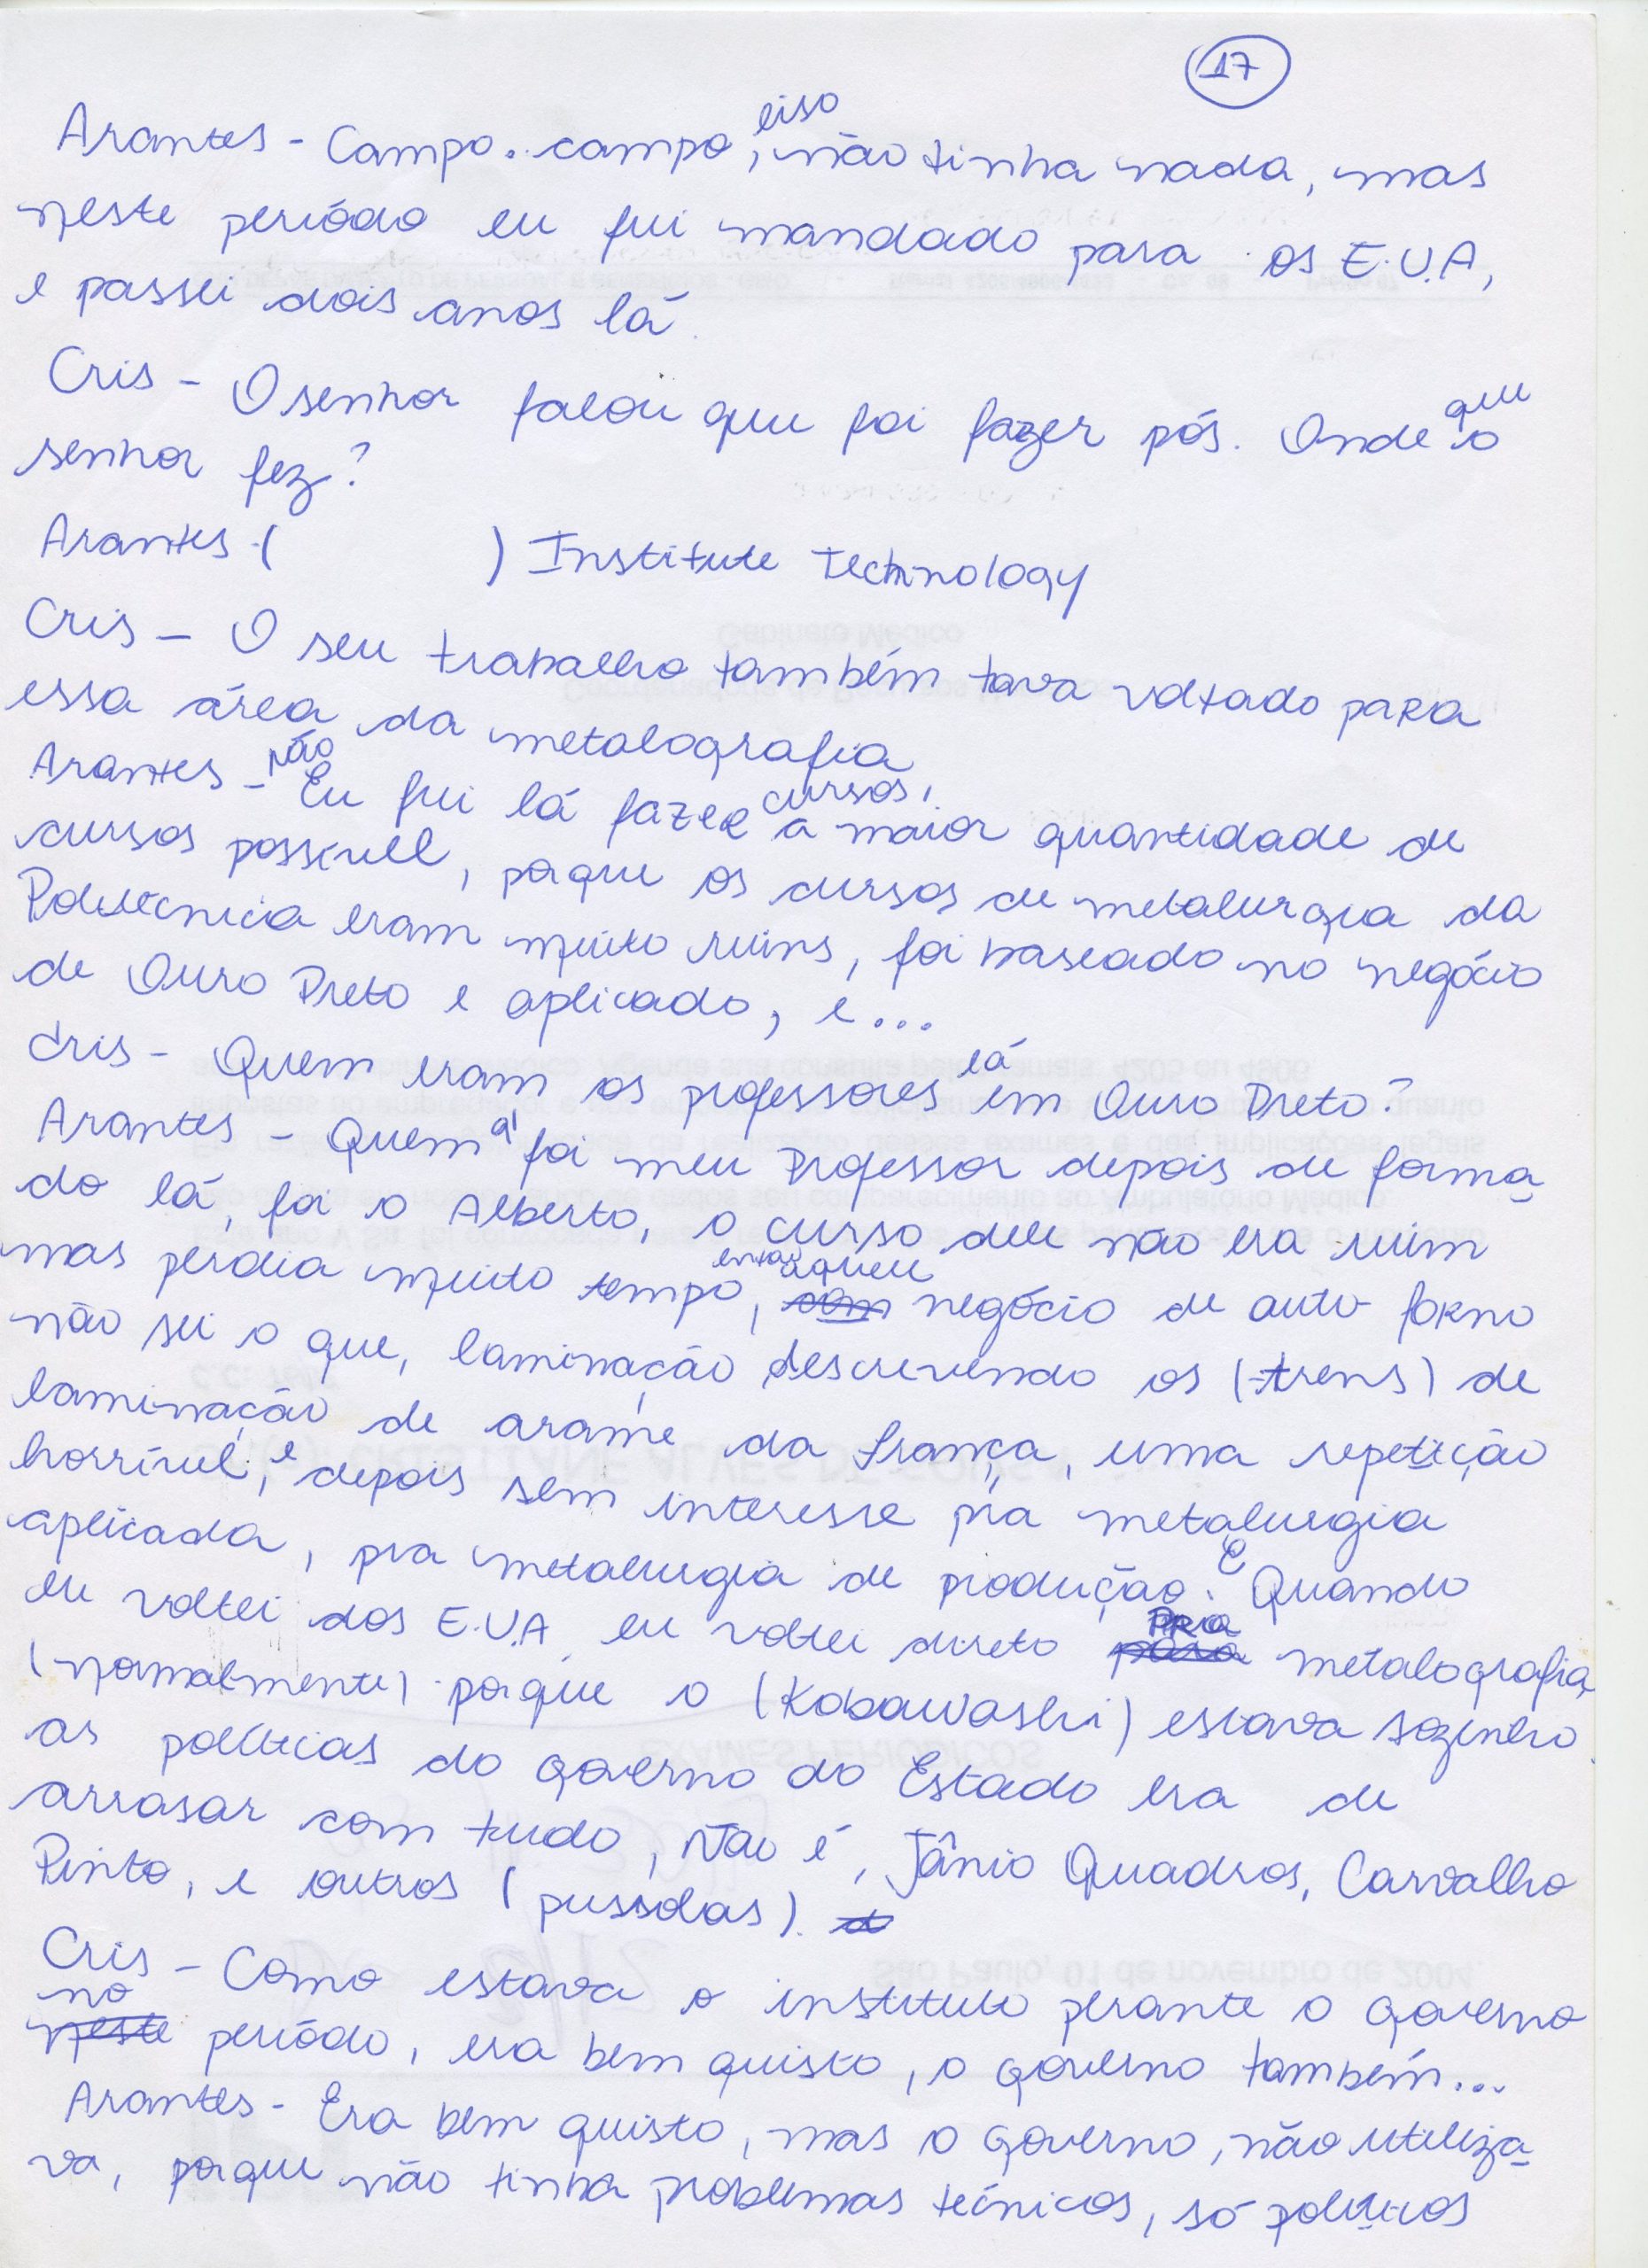 17
Arantes - Campo. campo, liso não tinha nada, mas
neste período eu fui mandado para os E.U.A,
e passei dois anos lá.
Cris - O senhor falou que foi fazer pós. Onde que o
senhor fez?
Arantes - ( ) Institute Technology
Cris - O seu trabalho também tava voltado para
essa área da metalografia
Arantes - Não Eu fui lá fazer cursos, a maior quantidade de
cursos possível, porque os cursos de metalurgia da
Politécnica eram muito ruins, foi baseado no negócio
de Ouro Preto e aplicado, e...
Cris - Quem eram os professores lá em Ouro Preto?
Arantes - Quem foi meu Professor depois de forma
do lá, foi o Alberto, o curso dele não era ruim
mas perdia muito tempo, então aquele negócio de auto forno
não sei o que, laminação descrevendo os (trens) de
laminação de arame da frança, uma repetição
horrível, e depois sem interesse pra metalurgia
aplicada, pra metalurgia de produção. E Quando
eu voltei dos E.U.A eu voltei direto PRA metalografia
(normalmente) porque o (Kobawashi) estava sozinho
as políticas do governo do Estado era de
arrasar com tudo, Não é, Jânio Quadros, Carvalho
Pinto, e outros (pussolas).
Cris - Como estava o instituto perante o governo
no período, era bem quisto, o governo também...
Arantes - Era bem quisto, mas o governo, não utiliza
va, porque não tinha problemas técnicos, só políticos